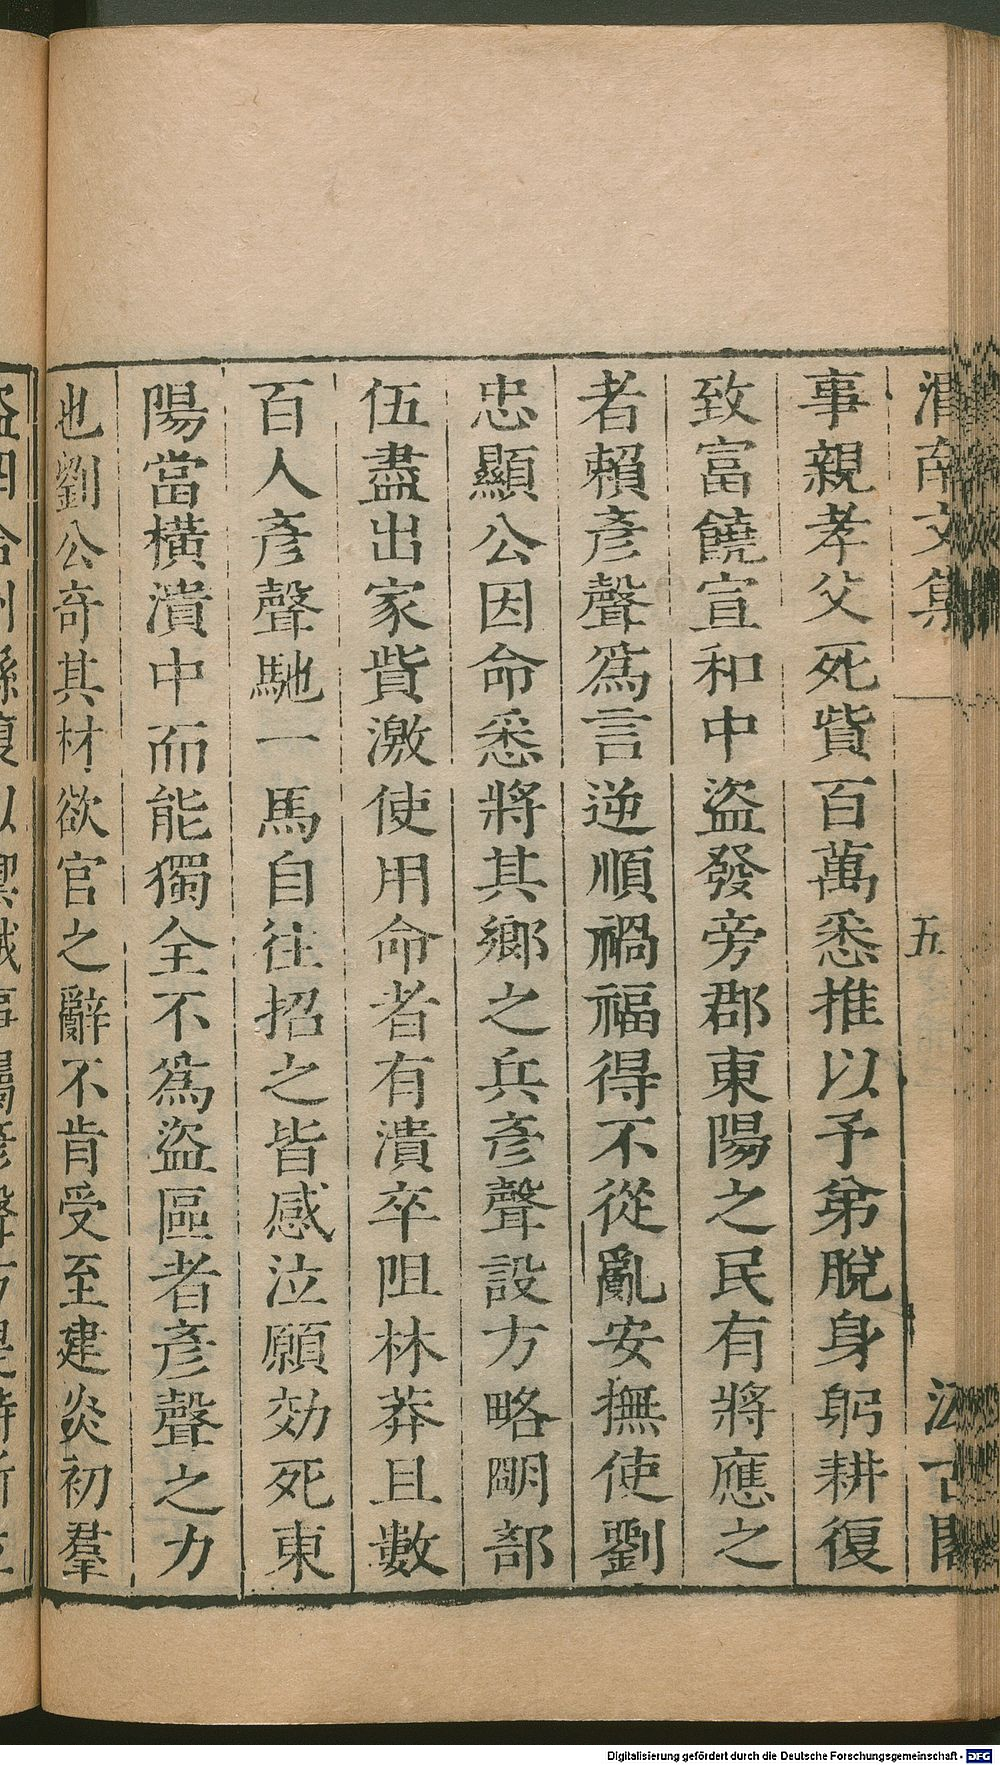 渭南文集
五
汲古閣
事親孝父死貲百萬悉推以予弟脫身躬耕復
致富饒宣和中盜發旁郡東陽之民有將應之
者賴彥聲爲言逆順禍福得不從亂安撫使劉
忠顯公因命悉將其鄉之兵彥聲設方略明部
伍盡出家貲激使用命者有潰卒阻林莽且數
百人彥聲馳一馬自往招之皆感泣願効死東
陽當橫潰中而能獨全不爲盜區者彥聲之力
也劉公奇其材欲官之辭不肯受至建炎初羣
Digitalisierung gefördert durch die Deutsche Forschungsgemeinschaft - DFG